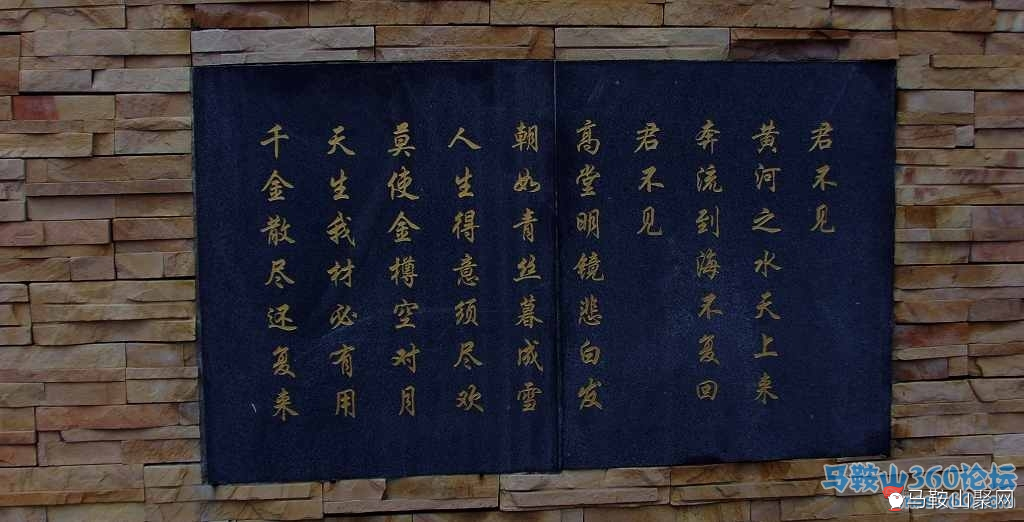 君不见
黄河之水天上来
奔流到海不复回
君不见
高堂明镜悲白发
朝如青丝暮成雪
人生得意须尽欢
莫使金樽空对月
天生我材必有用
千金散尽还复来
马鞍山360论坛
马鞍山聚网